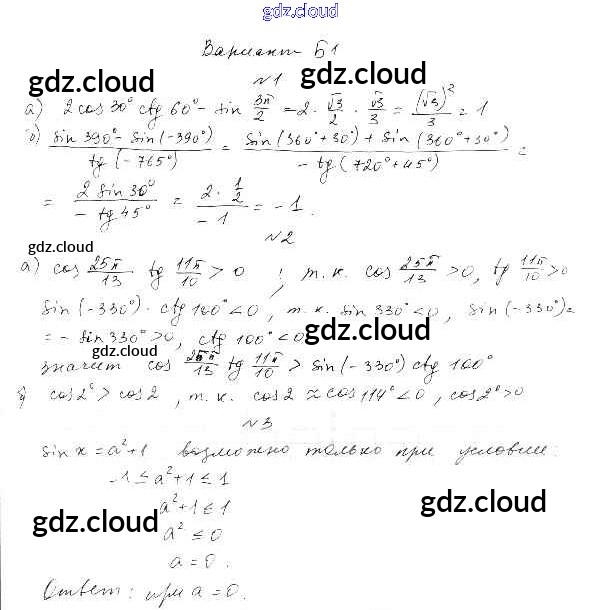 gdz.cloud
Вариант Б1
gdz.cloud gdz.cloud
№1
а) 2 cos 30° ctg 60° - sin 3π/2 = 2 · √3/2 · √3/3 = (√3)²/3 = 1
б) (sin 390° - sin(-390°))/(tg(-765°)) = (sin(360°+30°) + sin(360°+30°))/(-tg(720°+45°)) =
= (2 sin 30°)/(-tg 45°) = (2 · 1/2)/(-1) = -1.
№2
gdz.cloud
а) cos 25π/13 tg 11π/10 > 0 ; т.к. cos 25π/13 > 0, tg 11π/10 > 0
sin(-330°) · ctg 160° < 0, т.к. sin 330° < 0, sin(-330°) =
= - sin 330° > 0, ctg 100° < 0
gdz.cloud
gdz.cloud
значит cos 25π/13 tg 11π/10 > sin(-330°) ctg 100°
cos 2° > cos 2, т.к. cos 2 ≈ cos 114° < 0, cos 2° > 0
№3
sin x = a² + 1 возможено только при условии:
-1 ≤ a² + 1 ≤ 1
a² + 1 ≤ 1
gdz.cloud gdz.cloud
a² ≤ 0
a = 0.
Ответ: при a = 0.